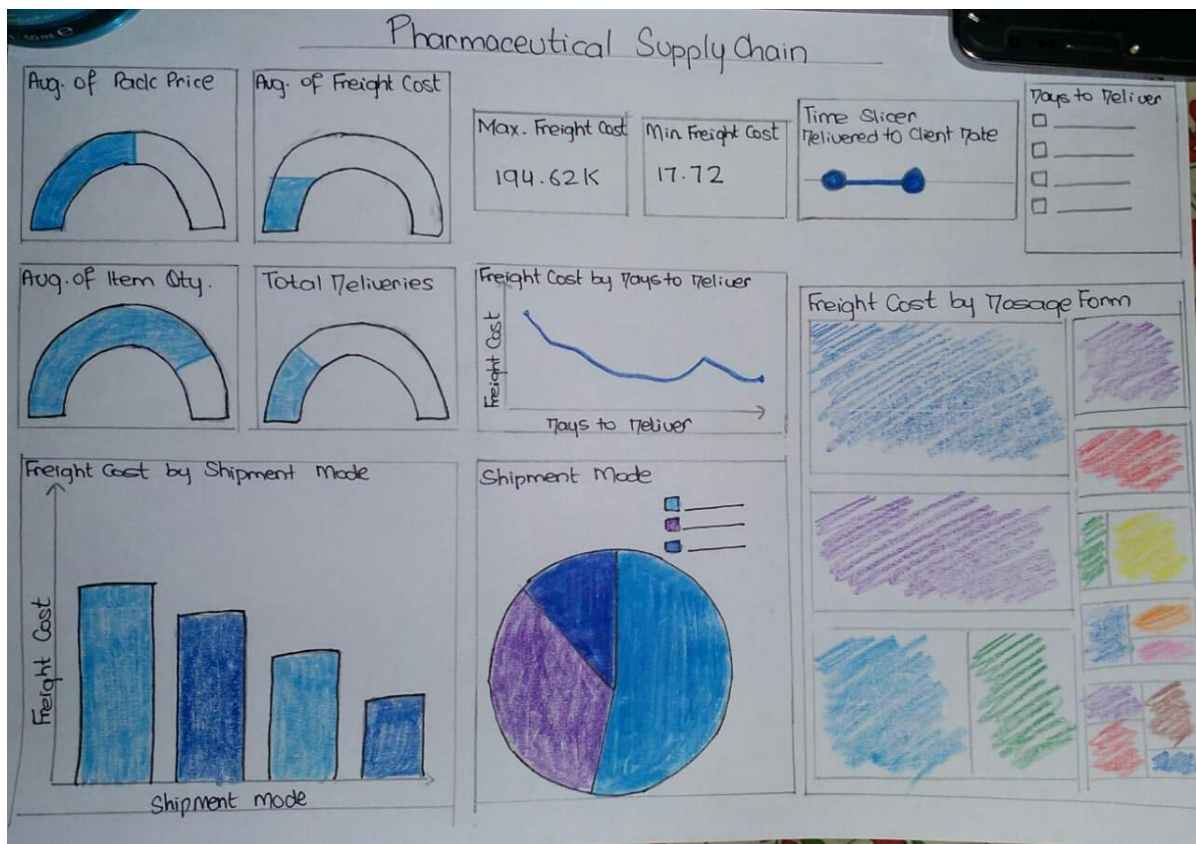 50 ml e
Pharmaceutical Supply Chain
Avg. of Pack Price
Avg. of Freight Cost
Max. Freight Cost
194.62K
Min Freight Cost
17.72
Time Slicer
Delivered to Client Date
Days to Deliver
Avg. of Item Qty.
Total Deliveries
Freight Cost by Days to Deliver
Freight Cost
Days to Deliver
Freight Cost by Dosage Form
Freight Cost by Shipment Mode
Freight Cost
Shipment Mode
Shipment Mode